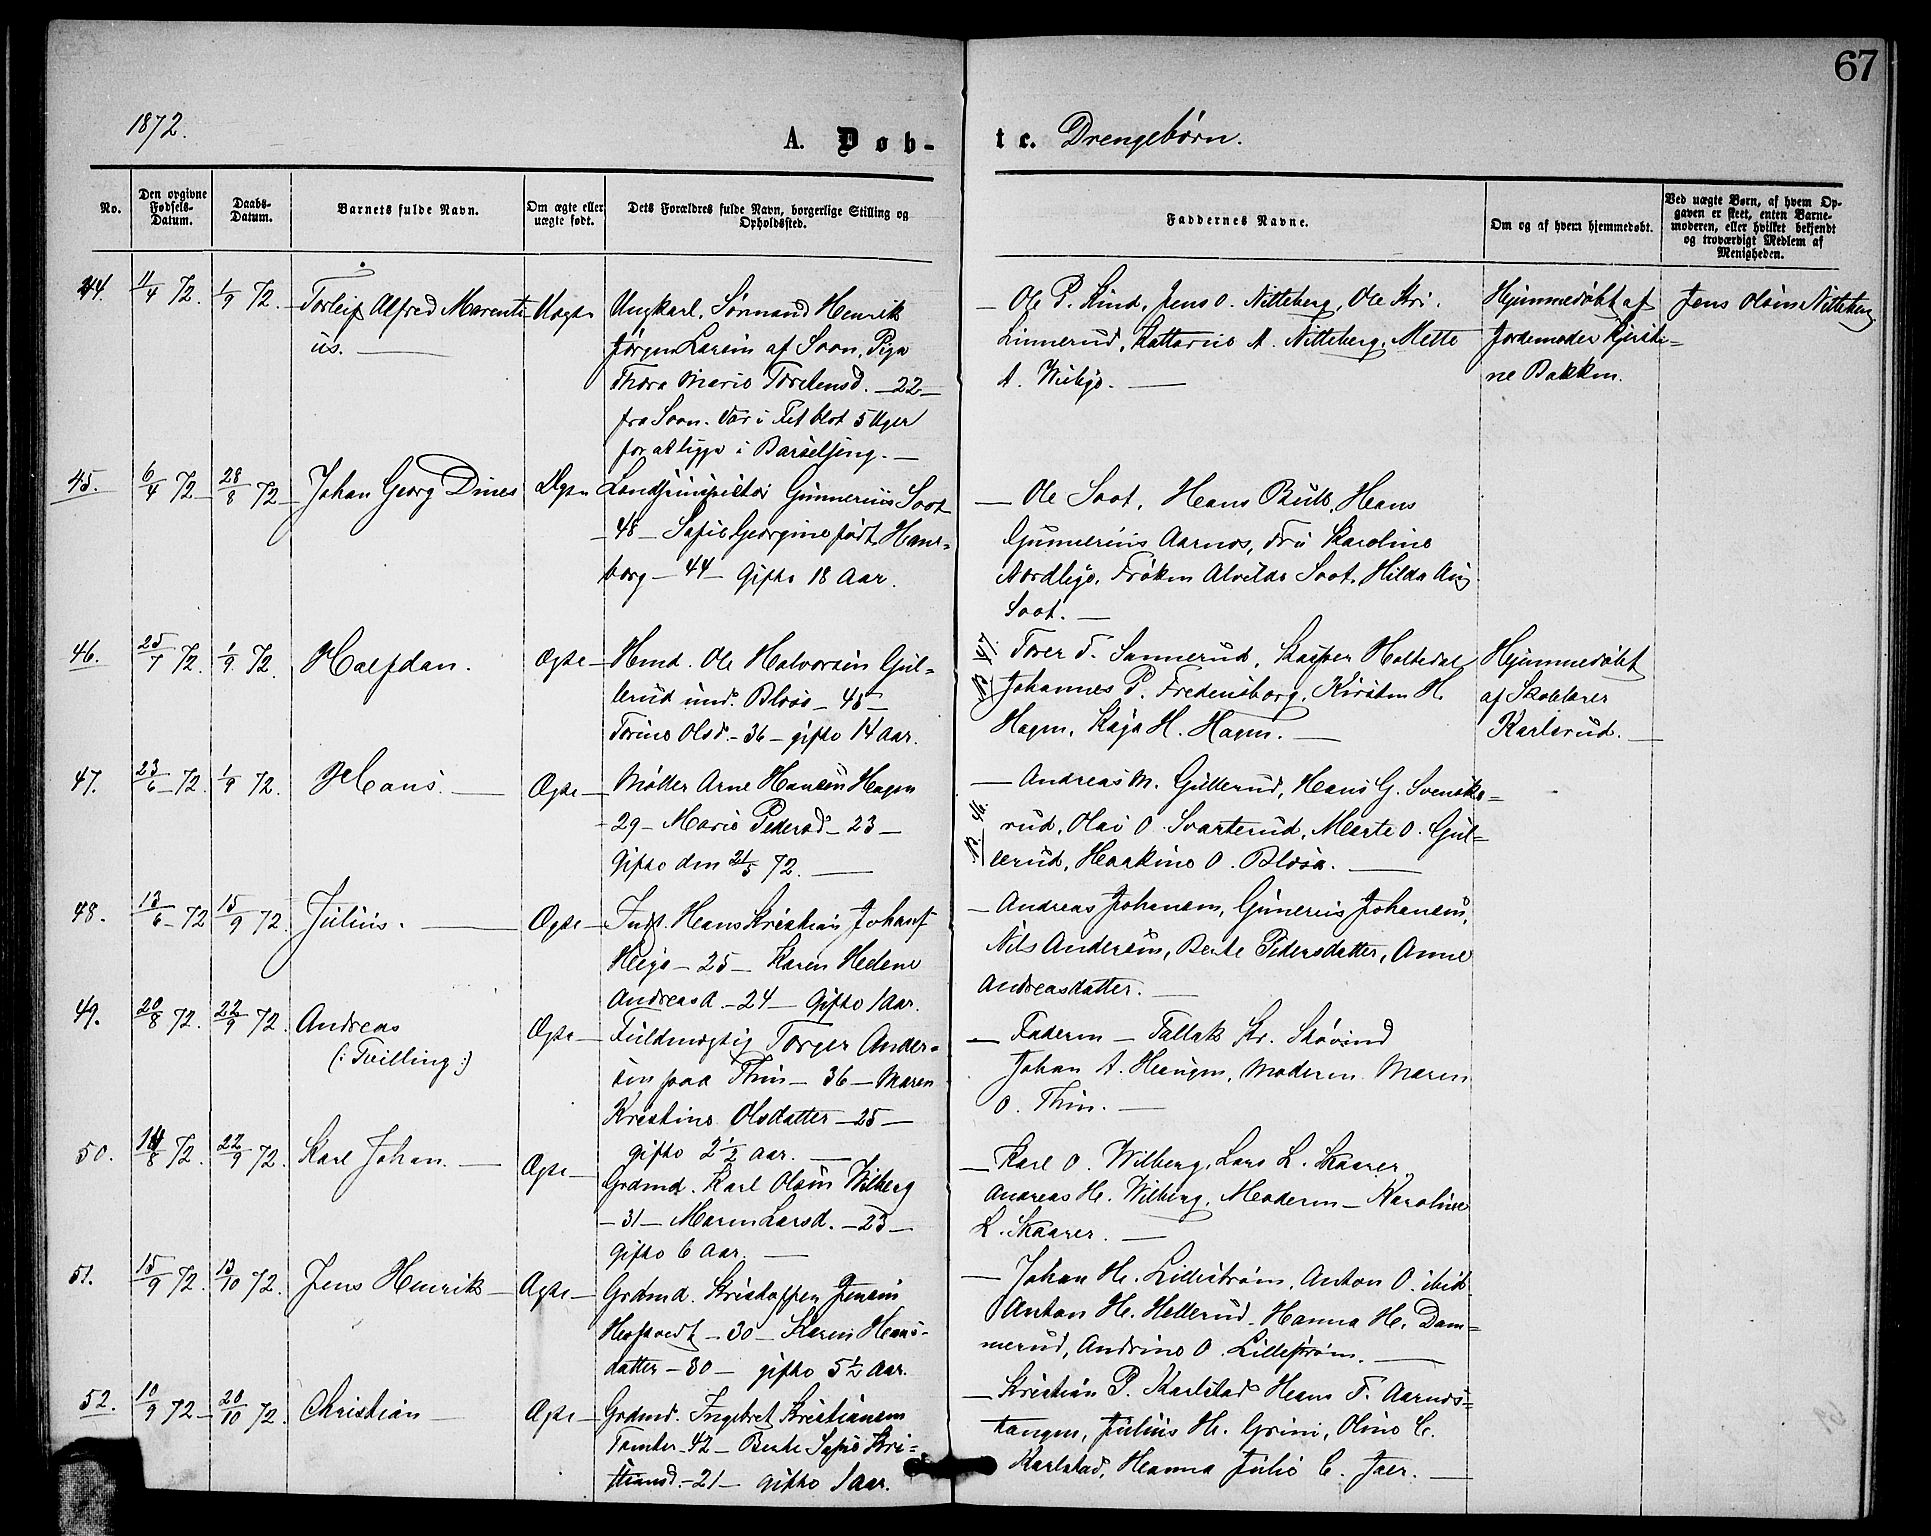 67
1872.
A. Døb-
te. Drengebørn.
No.
Den opgivne Fødsels-Datum.
Daabs-Datum.
Barnets fulde Navn.
Om ægte eller uægte født.
Dets Forældres fulde Navn, borgerlige Stilling og Opholdssted.
Faddernes Navne.
Om og af hvem hjemmedøbt.
Ved uægte Børn, af hvem Opgaven er skeet, enten Barnemoderen, eller hvilket bekjendt og troværdigt Medlem af Menigheden.
44. 11/4 72. 1/9 72. Torleif Alfred Marenti- Uægte
us.
Ungkarl, Sømand Henrik
Jørgen Larsen af Soon, Pige
Thora Marie Torstensd. - 22 -
fra Soon. Var i Fet blot 5 Uger
for at ligge i Barselseng. -
- Ole P. Kind, Jens O. Nitteberg, Ole Kri.
Linnerud, Kattarine A. Nitteberg, Mette
A. Wiibye. -
Hjemmedøbt af
Jordemoder Kjersti-
ne Bakken.
Jens Olsen Nitteberg
45. 6/4 72 28/8 72 Johan Georg Dines Ægte
Landinspektør Gunnerius Soot
- 48 - Sofie Georgine født Hans-
borg - 44 - Gifte 18 Aar.
- Ole Soot, Hans Bull, Hans
Gunnerius Aarnes, Fru Karoline
Nordbye, Frøken Alvilde Soot, Hilda Aug
Soot. -
46. 25/7 72. 1/9 72. Halfdan. Ægte -
Hmd. Ole Halvorsen Gul-
lerud und. Bløsa - 45 -
Torine Olsd. - 36 - gifte 14 Aar.
No. 47.
Torer T. Sannerud, Kasper Holtedal
Johannes P. Fredensborg, Kirsten H.
Hagen, Kaja H. Hagen. -
Hjemmedøbt
af Skolelærer
Karlsrud. -
47. 23/6 72. 1/9 72. Hans. - Ægte -
Møller Arne Hansen Hagen
- 29 - Marie Pedersd - 23 -
Gifte den 21/5 72. -
No. 46.
- Andreas M. Gullerud, Hans G. Svenske-
rud, Olai O. Svarterud, Marte O. Gul-
lerud, Haakine O. Bløsa. -
48. 13/6 72 15/9 72. Julius. - Ægte -
Indst. Hans Kristian Johans
Heije - 25 - Karen Helene
Andreasd. - 24 - Gifte 1 Aar.
- Andreas Johansen, Gunerius Johansen,
Nils Andersen, Berte Pedersdatter, Anne
Andreasdatter. -
49. 20/8 72. 22/9 72. Andreas Ægte -
(: Tvilling :)
Fuldmægtig Torger Ander-
sen paa Thiin - 36 - Maren
Kristine Olsdatter - 25 -
gifte 2 1/2 Aar. -
- Faderen - Tallak Kr. Skøvind
Johan A. Heungen, Moderen Maren
O. Thiin. -
50. 14/8 72. 22/9 72. Karl Johan. - Ægte -
Grdmd. Karl Olsen Wilberg
- 31 - Maren Larsd. - 23 -
gifte 6 Aar. -
- Karl O. Wilberg, Lars L. Skaarer
Andreas H. Wilberg. Moderen - Karoline
L. Skaarer. -
51. 15/9 72. 13/10 72. Jens Henrik - Ægte -
Grdmd. Kristoffer Jensen
Hoftvedt - 30 - Karen Hans-
datter - 30 - gifte 5 1/2 Aar.
- Johan H. Lillestrøm, Anton O. ibid.
Anton H. Hellerud, Hanna H. Dam-
merud, Andrine O. Lillestrøm. -
52. 10/9 72 - 20/10 72. Christian - Ægte -
Grdmd. Ingebret Kristiansen
Tomter - 42 - Berte Sofie Kri-
stiansd. - 21 - gifte 1 Aar.
- Kristian P. Karlstad Hans F. Aarnes-
tangen, Julius H. Grini, Oline C.
Karlstad, Hanna Julie C. Jaer. -